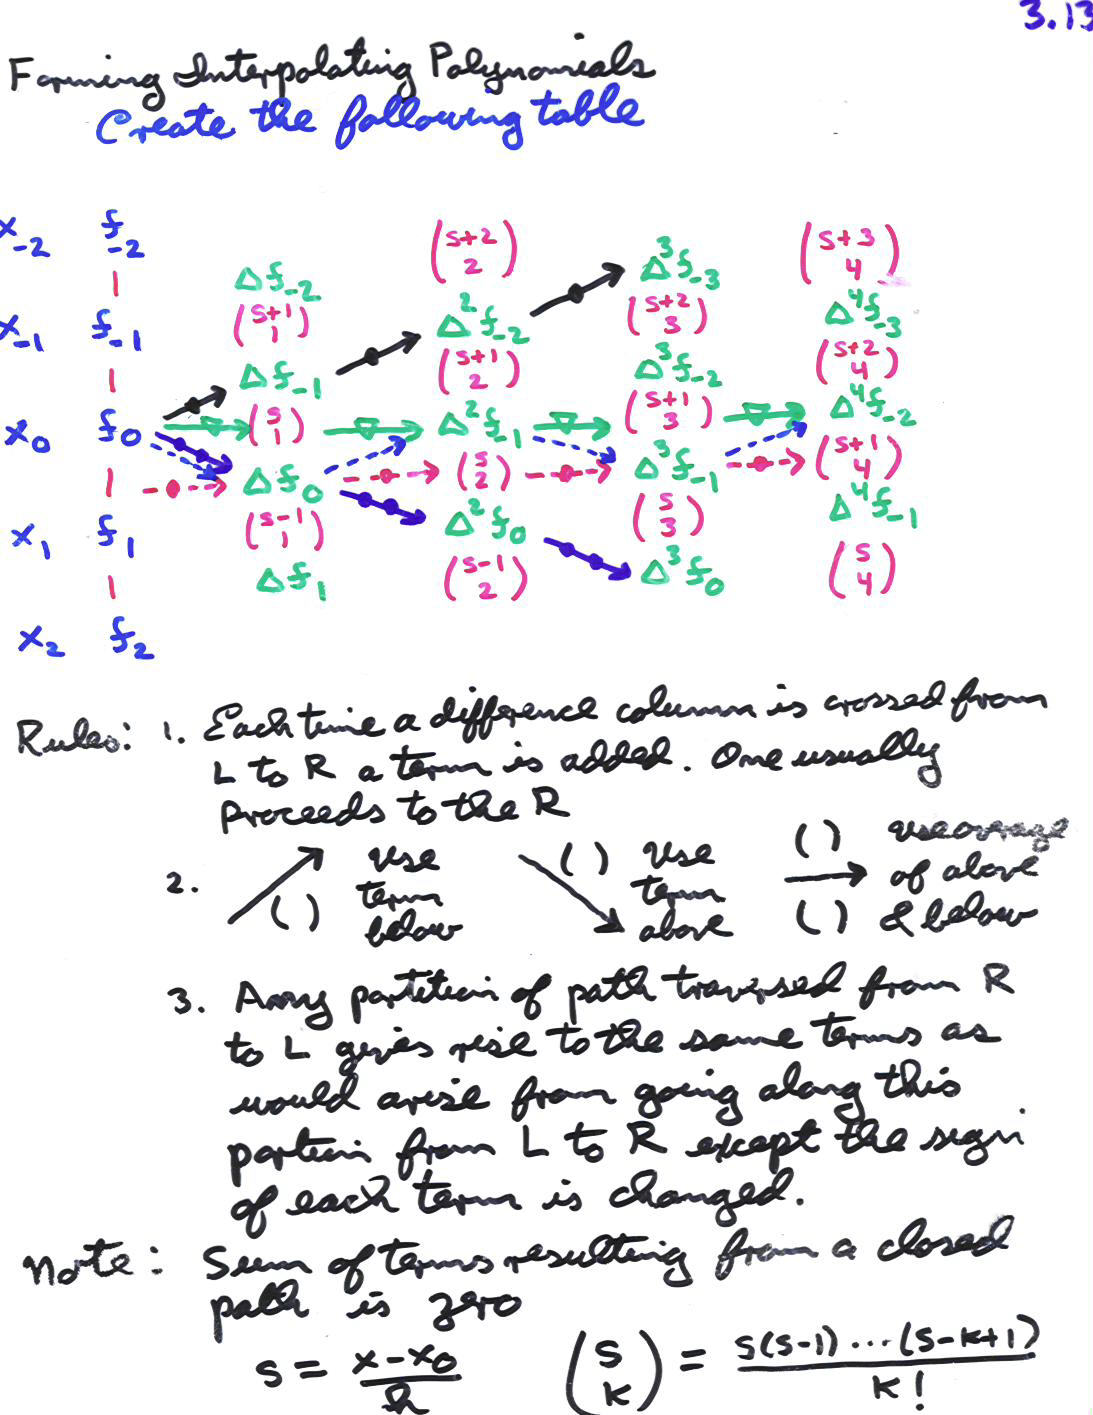 3.13
Forming Interpolating Polynomials
Create the following table
x_{-2} f_{-2} \binom{s+2}{2} Δ^3f_{-3} \binom{s+3}{4}
| Δf_{-2} \binom{s+1}{1} Δ^2f_{-2} \binom{s+2}{3} Δ^4f_{-3}
x_{-1} f_{-1} \binom{s+1}{2} Δ^3f_{-2} \binom{s+2}{4}
| Δf_{-1}
x_0 f_0 \binom{s}{1} Δ^2f_{-1} \binom{s+1}{3} Δ^4f_{-2}
| Δf_0 \binom{s}{2} Δ^3f_{-1} \binom{s+1}{4}
x_1 f_1 \binom{s-1}{1} Δ^2f_0 \binom{s}{3} Δ^4f_{-1}
| Δf_1 \binom{s-1}{2} Δ^3f_0 \binom{s}{4}
x_2 f_2
Rules: 1. Each time a difference column is crossed from
L to R a term is added. One usually
Proceeds to the R
2. ( ) use term below ( ) use term above ( ) ( ) use average of above & below
3. Any partition of path traversed from R
to L gives rise to the same terms as
would arise from going along this
portion from L to R except the sign
of each term is changed.
Note: Sum of terms resulting from a closed
path is zero
s = \frac{x-x_0}{h} \binom{s}{k} = \frac{s(s-1)...(s-k+1)}{k!}